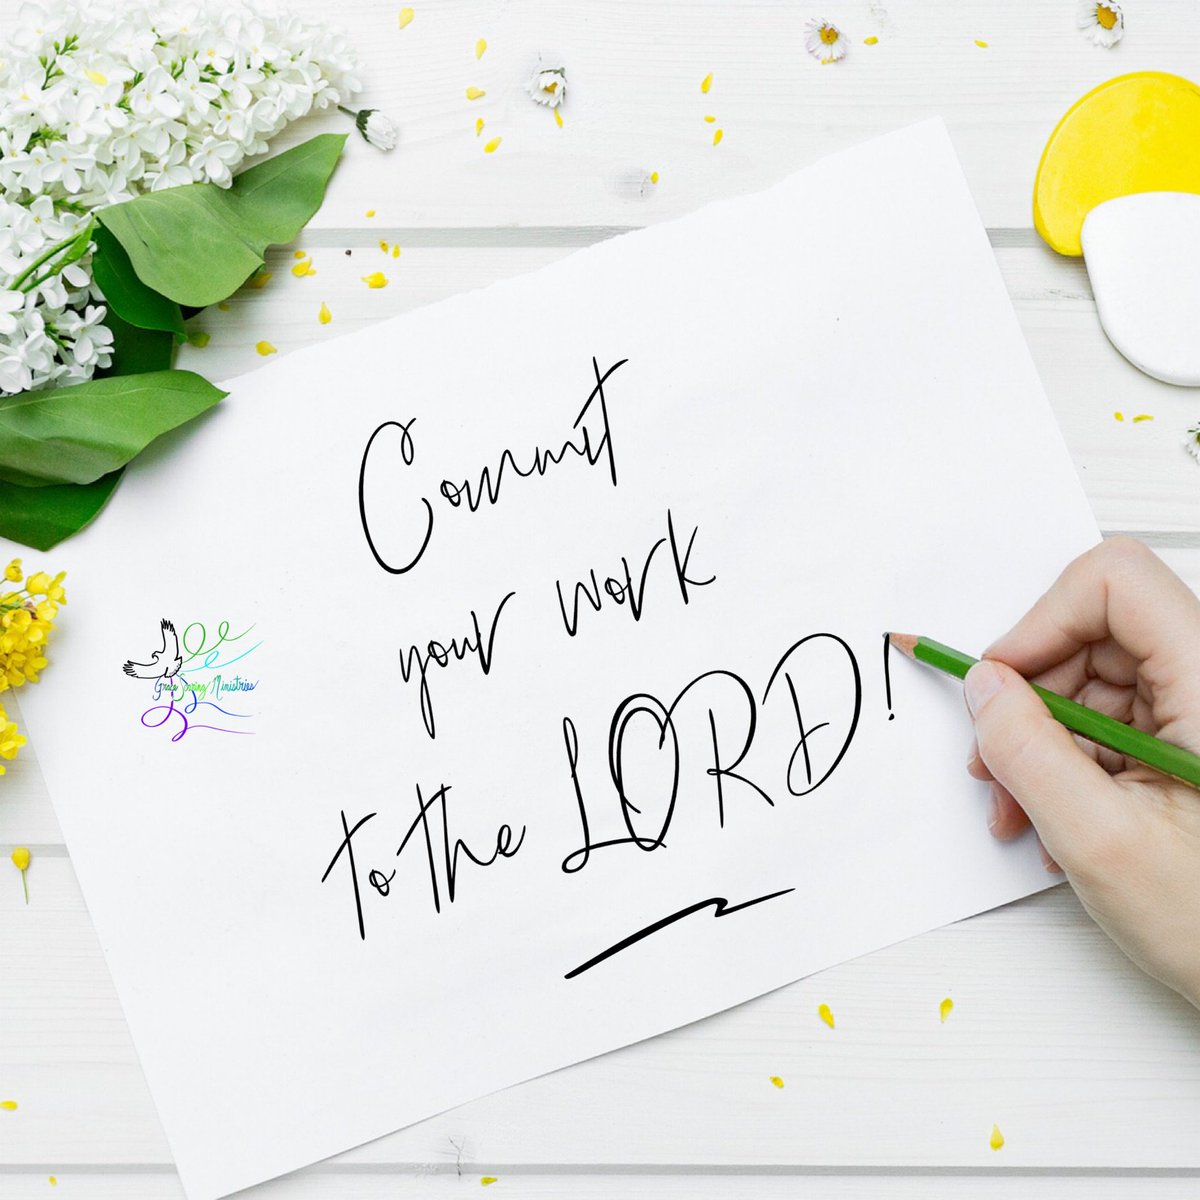 Commit
your work
to the LORD!
Grace Soaring Ministries